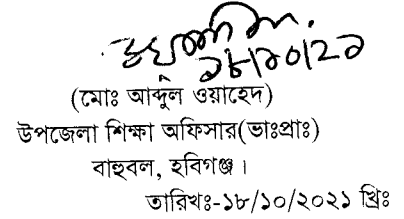 ১৮/১০/২১
(মোঃ আব্দুল ওয়াহেদ)
উপজেলা শিক্ষা অফিসার(ভাঃপ্রাঃ)
বাহুবল, হবিগঞ্জ।
তারিখঃ-১৮/১০/২০২১ খ্রিঃ